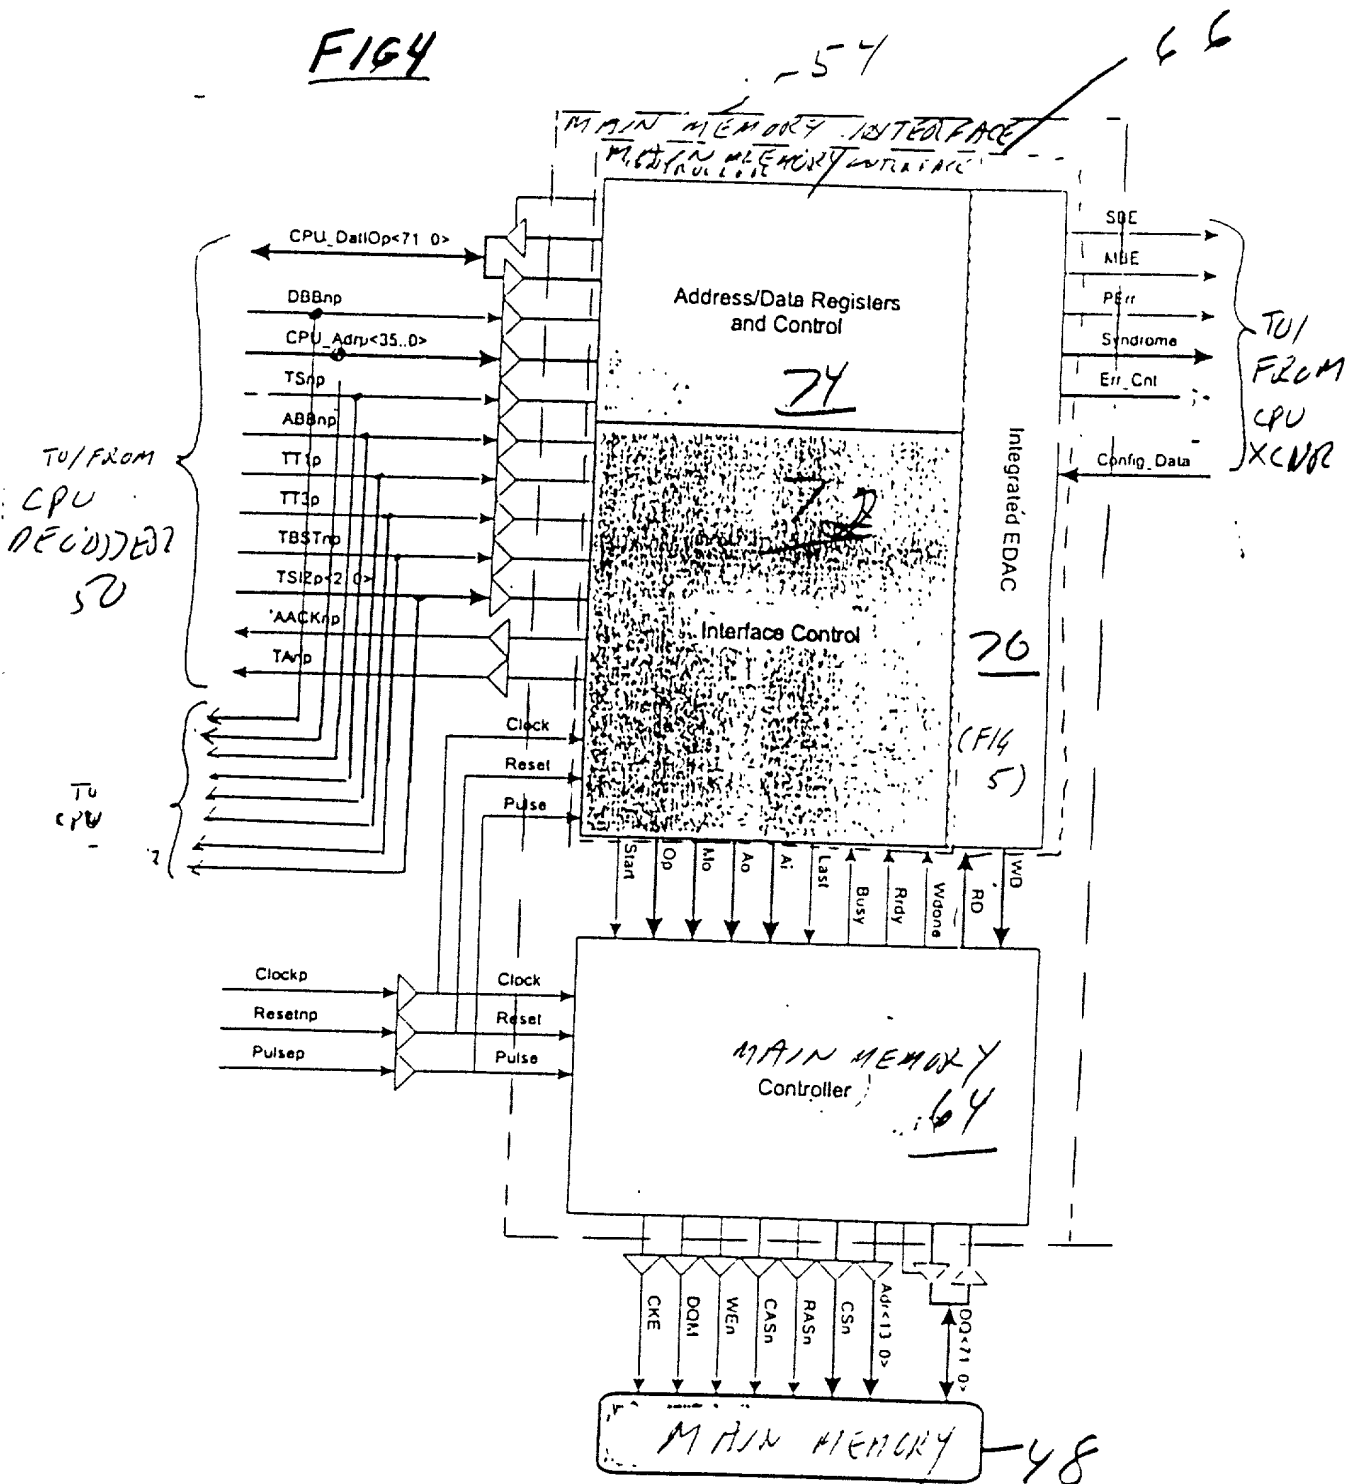 FIG4
54
66
MAIN MEMORY INTERFACE
MAIN MEMORY INTERFACE
CPU_DatIOp<71 0>
DBBnp
CPU_Adrp<35..0>
TSnp
ABBnp
TT1p
TT3p
TBSTnp
TSIZp<2 0>
AACKnp
TAnp
TO/FROM
CPU
DECODER
50
TO
CPU
Address/Data Registers
and Control
74
72
Interface Control
Integrated EDAC
70
(FIG
5)
SBE
MBE
PErr
Syndrome
Err_Cnt
Config_Data
TO/
FROM
CPU
Clock
Reset
Pulse
Start
Op
Mo
Ao
Ai
Last
Busy
Rrdy
Wdone
RD
WD
Clockp
Resetnp
Pulsep
Clock
Reset
Pulse
MAIN MEMORY
Controller
64
CKE
DQM
WEn
CASn
RASn
CSn
Adr<13 0>
DQ<71 0>
MAIN MEMORY
48